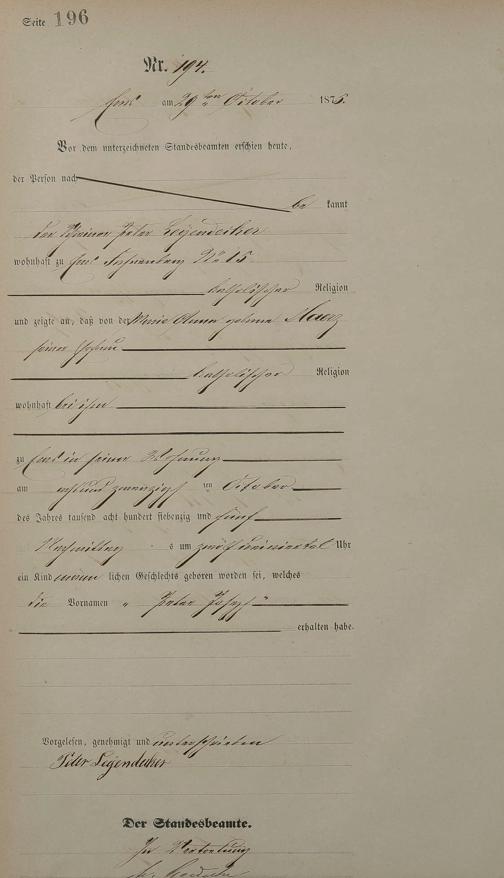 Seite 196
Nr. 194.
Ems am 29ten October 1875.
Vor dem unterzeichneten Standesbeamten erschien heute,
der Person nach
be kannt
der Peter Leyendecker
wohnhaft zu Ems No 15
katholischer Religion
und zeigte an, daß von der Maria Anna geborne
seiner Ehefrau
katholischer Religion
wohnhaft bei ihm
zu Ems in seiner Wohnung
am acht und zwanzigsten October
des Jahres tausend acht hundert siebenzig und fünf
Nachmittags um zwölf ein viertel Uhr
ein Kind männ lichen Geschlechts geboren worden sei, welches
die Vornamen „ Peter Joseph "
erhalten habe.
Vorgelesen, genehmigt und unterschrieben
Peter Leyendecker
Der Standesbeamte.
In Vertretung